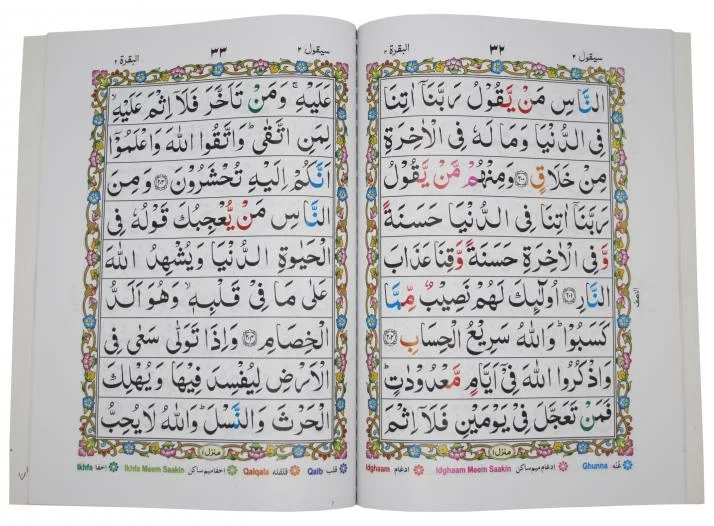 سيقول ٢ ٣٢ البقرة ٢
النَّاسِ مَنْ يَّقُوْلُ رَبَّنَآ اٰتِنَا
فِى الدُّنْيَا وَمَا لَهٗ فِى الْاٰخِرَةِ
مِنْ خَلَاقٍ ۝٢٠٠ وَمِنْهُمْ مَّنْ يَّقُوْلُ
رَبَّنَآ اٰتِنَا فِى الدُّنْيَا حَسَنَةً
وَّفِى الْاٰخِرَةِ حَسَنَةً وَّقِنَا عَذَابَ
النَّارِ ۝٢٠١ اُولٰٓئِكَ لَهُمْ نَصِيْبٌ مِّمَّا
كَسَبُوْا ؕ وَاللّٰهُ سَرِيْعُ الْحِسَابِ ۝٢٠٢
وَاذْكُرُوا اللّٰهَ فِىْٓ اَيَّامٍ مَّعْدُوْدٰتٍ ؕ
فَمَنْ تَعَجَّلَ فِىْ يَوْمَيْنِ فَلَآ اِثْمَ
النصف
منزل ١
Ghunna غُنّه Idghaam Meem Saakin ادغام ميم ساكن Idghaam ادغام
سيقول ٢ ٣٣ البقرة ٢
عَلَيْهِ ۚ وَمَنْ تَاَخَّرَ فَلَآ اِثْمَ عَلَيْهِ ۙ
لِمَنِ اتَّقٰى ؕ وَاتَّقُوا اللّٰهَ وَاعْلَمُوْٓا
اَنَّكُمْ اِلَيْهِ تُحْشَرُوْنَ ۝٢٠٣ وَمِنَ
النَّاسِ مَنْ يُّعْجِبُكَ قَوْلُهٗ فِى
الْحَيٰوةِ الدُّنْيَا وَيُشْهِدُ اللّٰهَ
عَلٰى مَا فِىْ قَلْبِهٖ ۙ وَهُوَ اَلَدُّ
الْخِصَامِ ۝٢٠٤ وَاِذَا تَوَلّٰى سَعٰى فِى
الْاَرْضِ لِيُفْسِدَ فِيْهَا وَيُهْلِكَ
الْحَرْثَ وَالنَّسْلَ ؕ وَاللّٰهُ لَا يُحِبُّ
منزل ١
Qalb قلب Qalqala قلقله Ikhfa Meem Saakin اخفا ميم ساكن Ikhfa اخفا